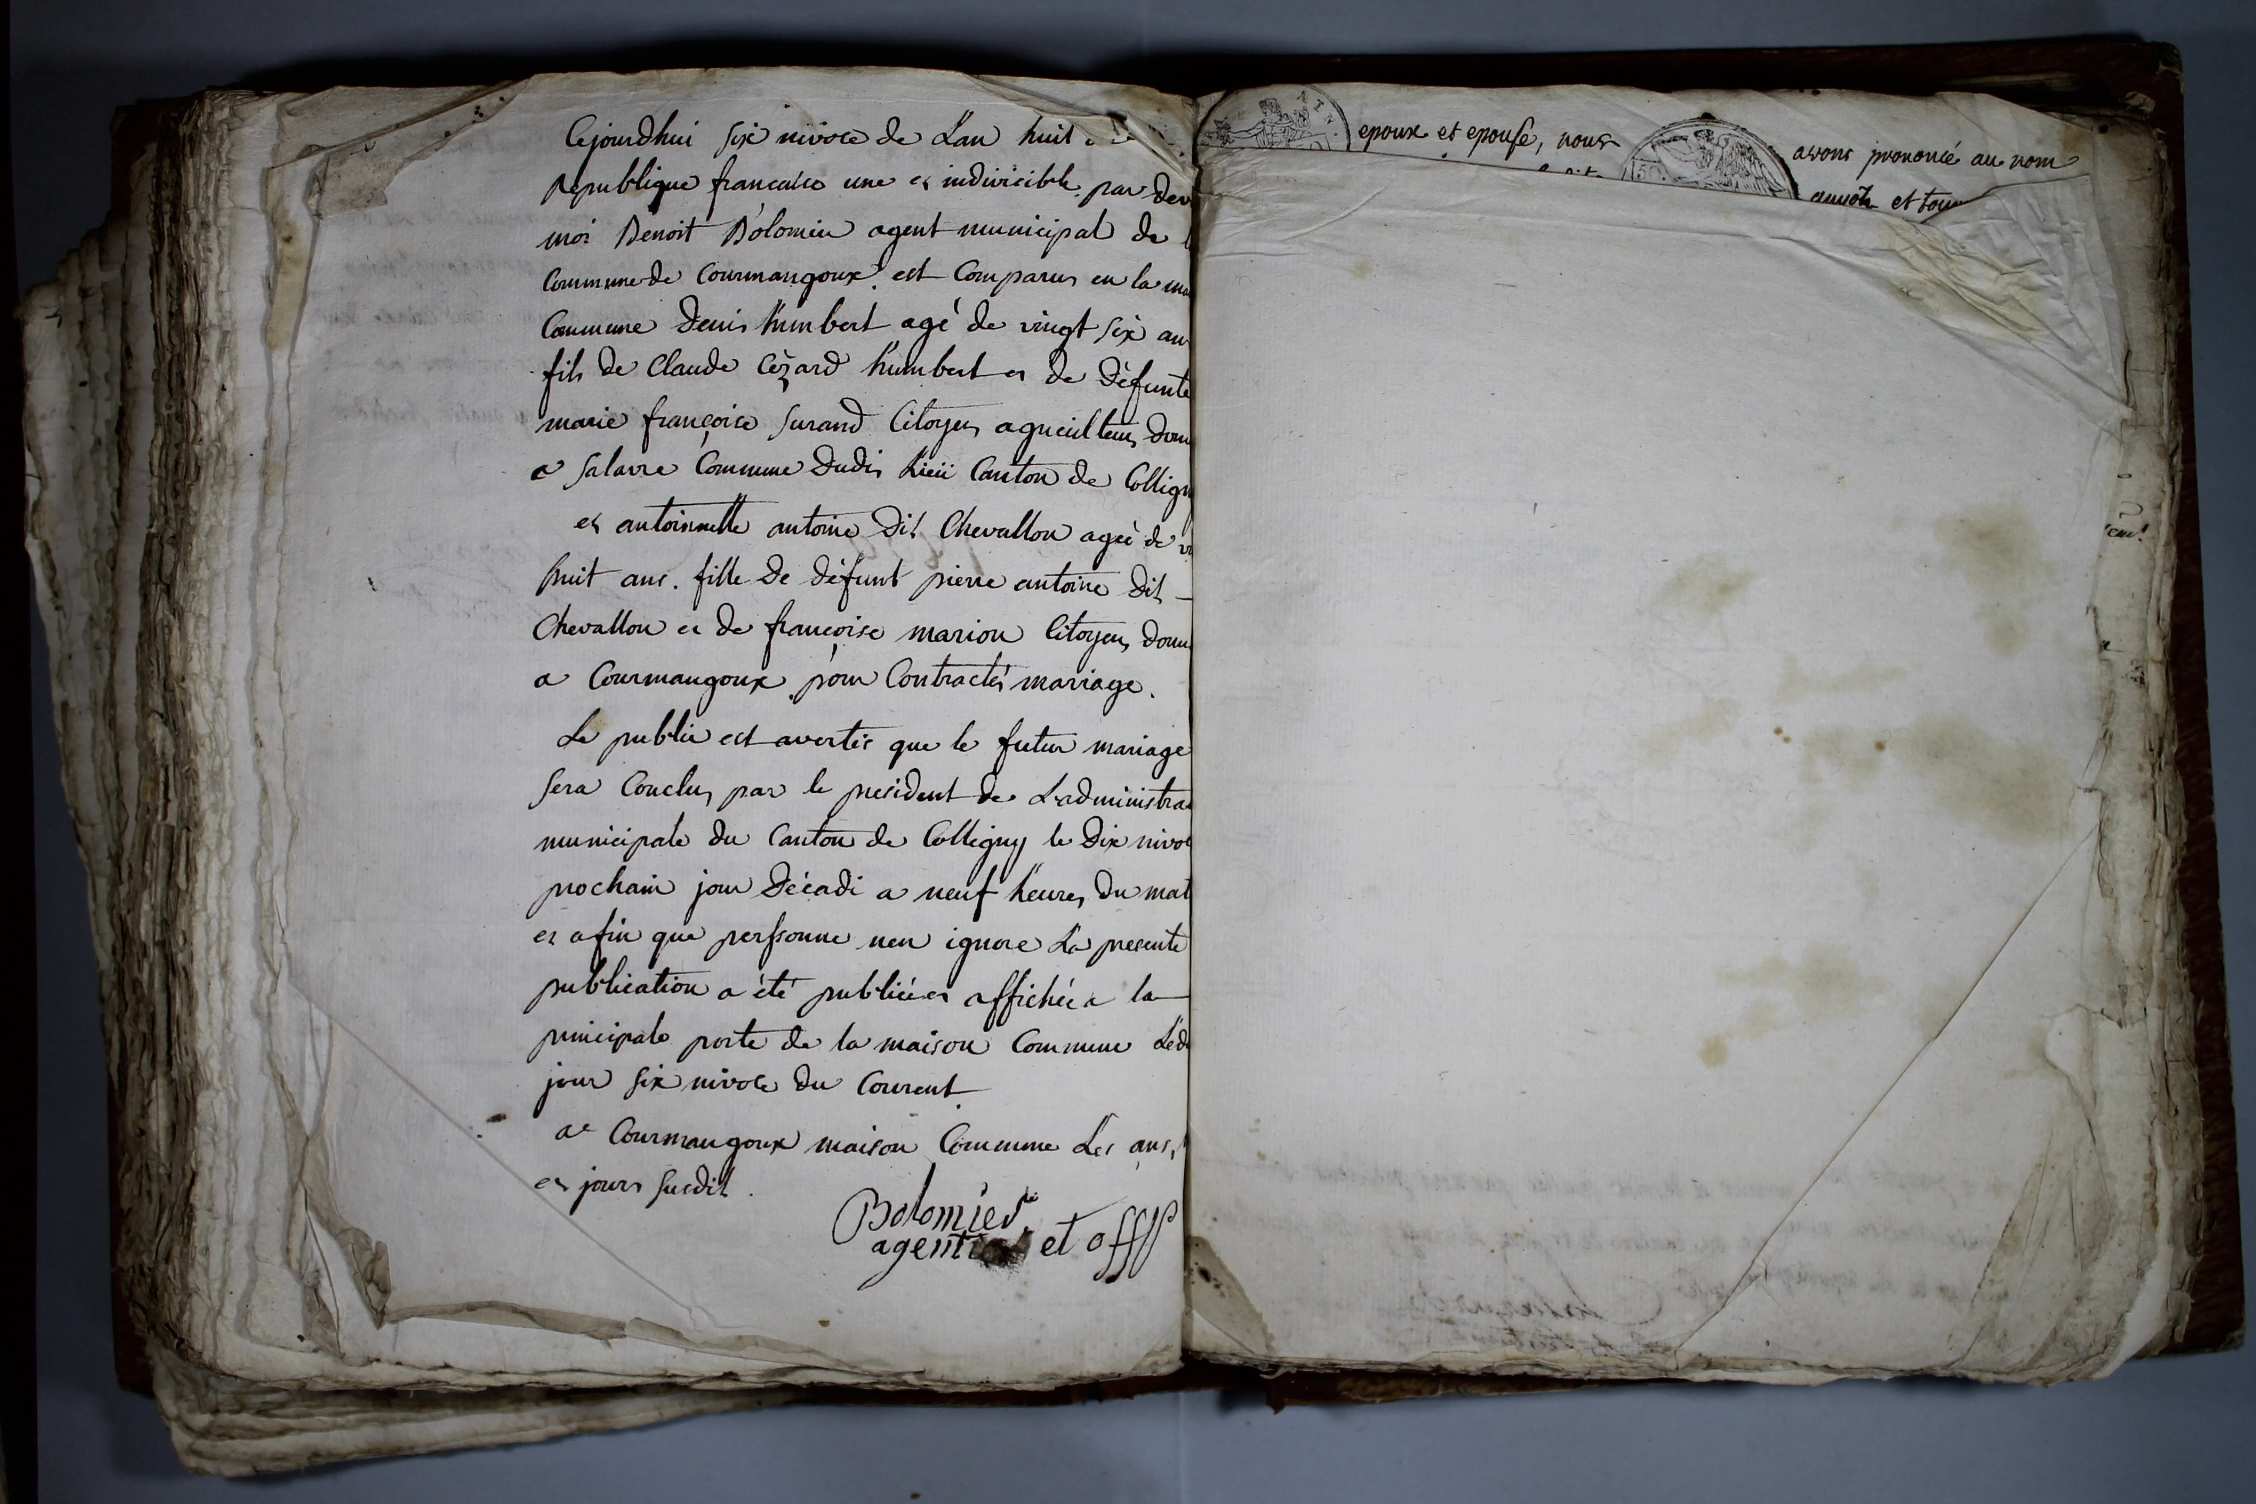 Cejourdhui six nivose de Lan huit
Republique francaise une et indivicible par dev
moi Benoit Bolomieu agent municipal de l
Commune de Courmangoux est Comparus en la ma
Commune Denis humbert agé de vingt six an
fils de Claude Cézard humbert et de défunte
marie françoise Surand Citoyen agricülteur dom
a Salavre Commune dudit Lieü Canton de Collign
et antoinnette antoine dit Chevallon ageé de v
huit ans. fille de défunt pierre antoine dit
Chevallon et de francoise marion Citoyen dom
a Courmangoux pour Contractér mariage.
Le public est avertis que le futur mariage
sera Conclus par le president de Ladministra
municipale du Canton de Colligny le dix nivos
prochain jour décadi a neuf heures du mat
et afin que perssonne nen ignore La presente
publication a été publiée et affichée a la
principale porte de la maison Commune Led
jour six nivose du Courent
a Courmangoux maison Commune Les ans,
et jours susdit.
Bolomier
agent et off
epoux et epouse, nous
avons prononcé au nom
et tou